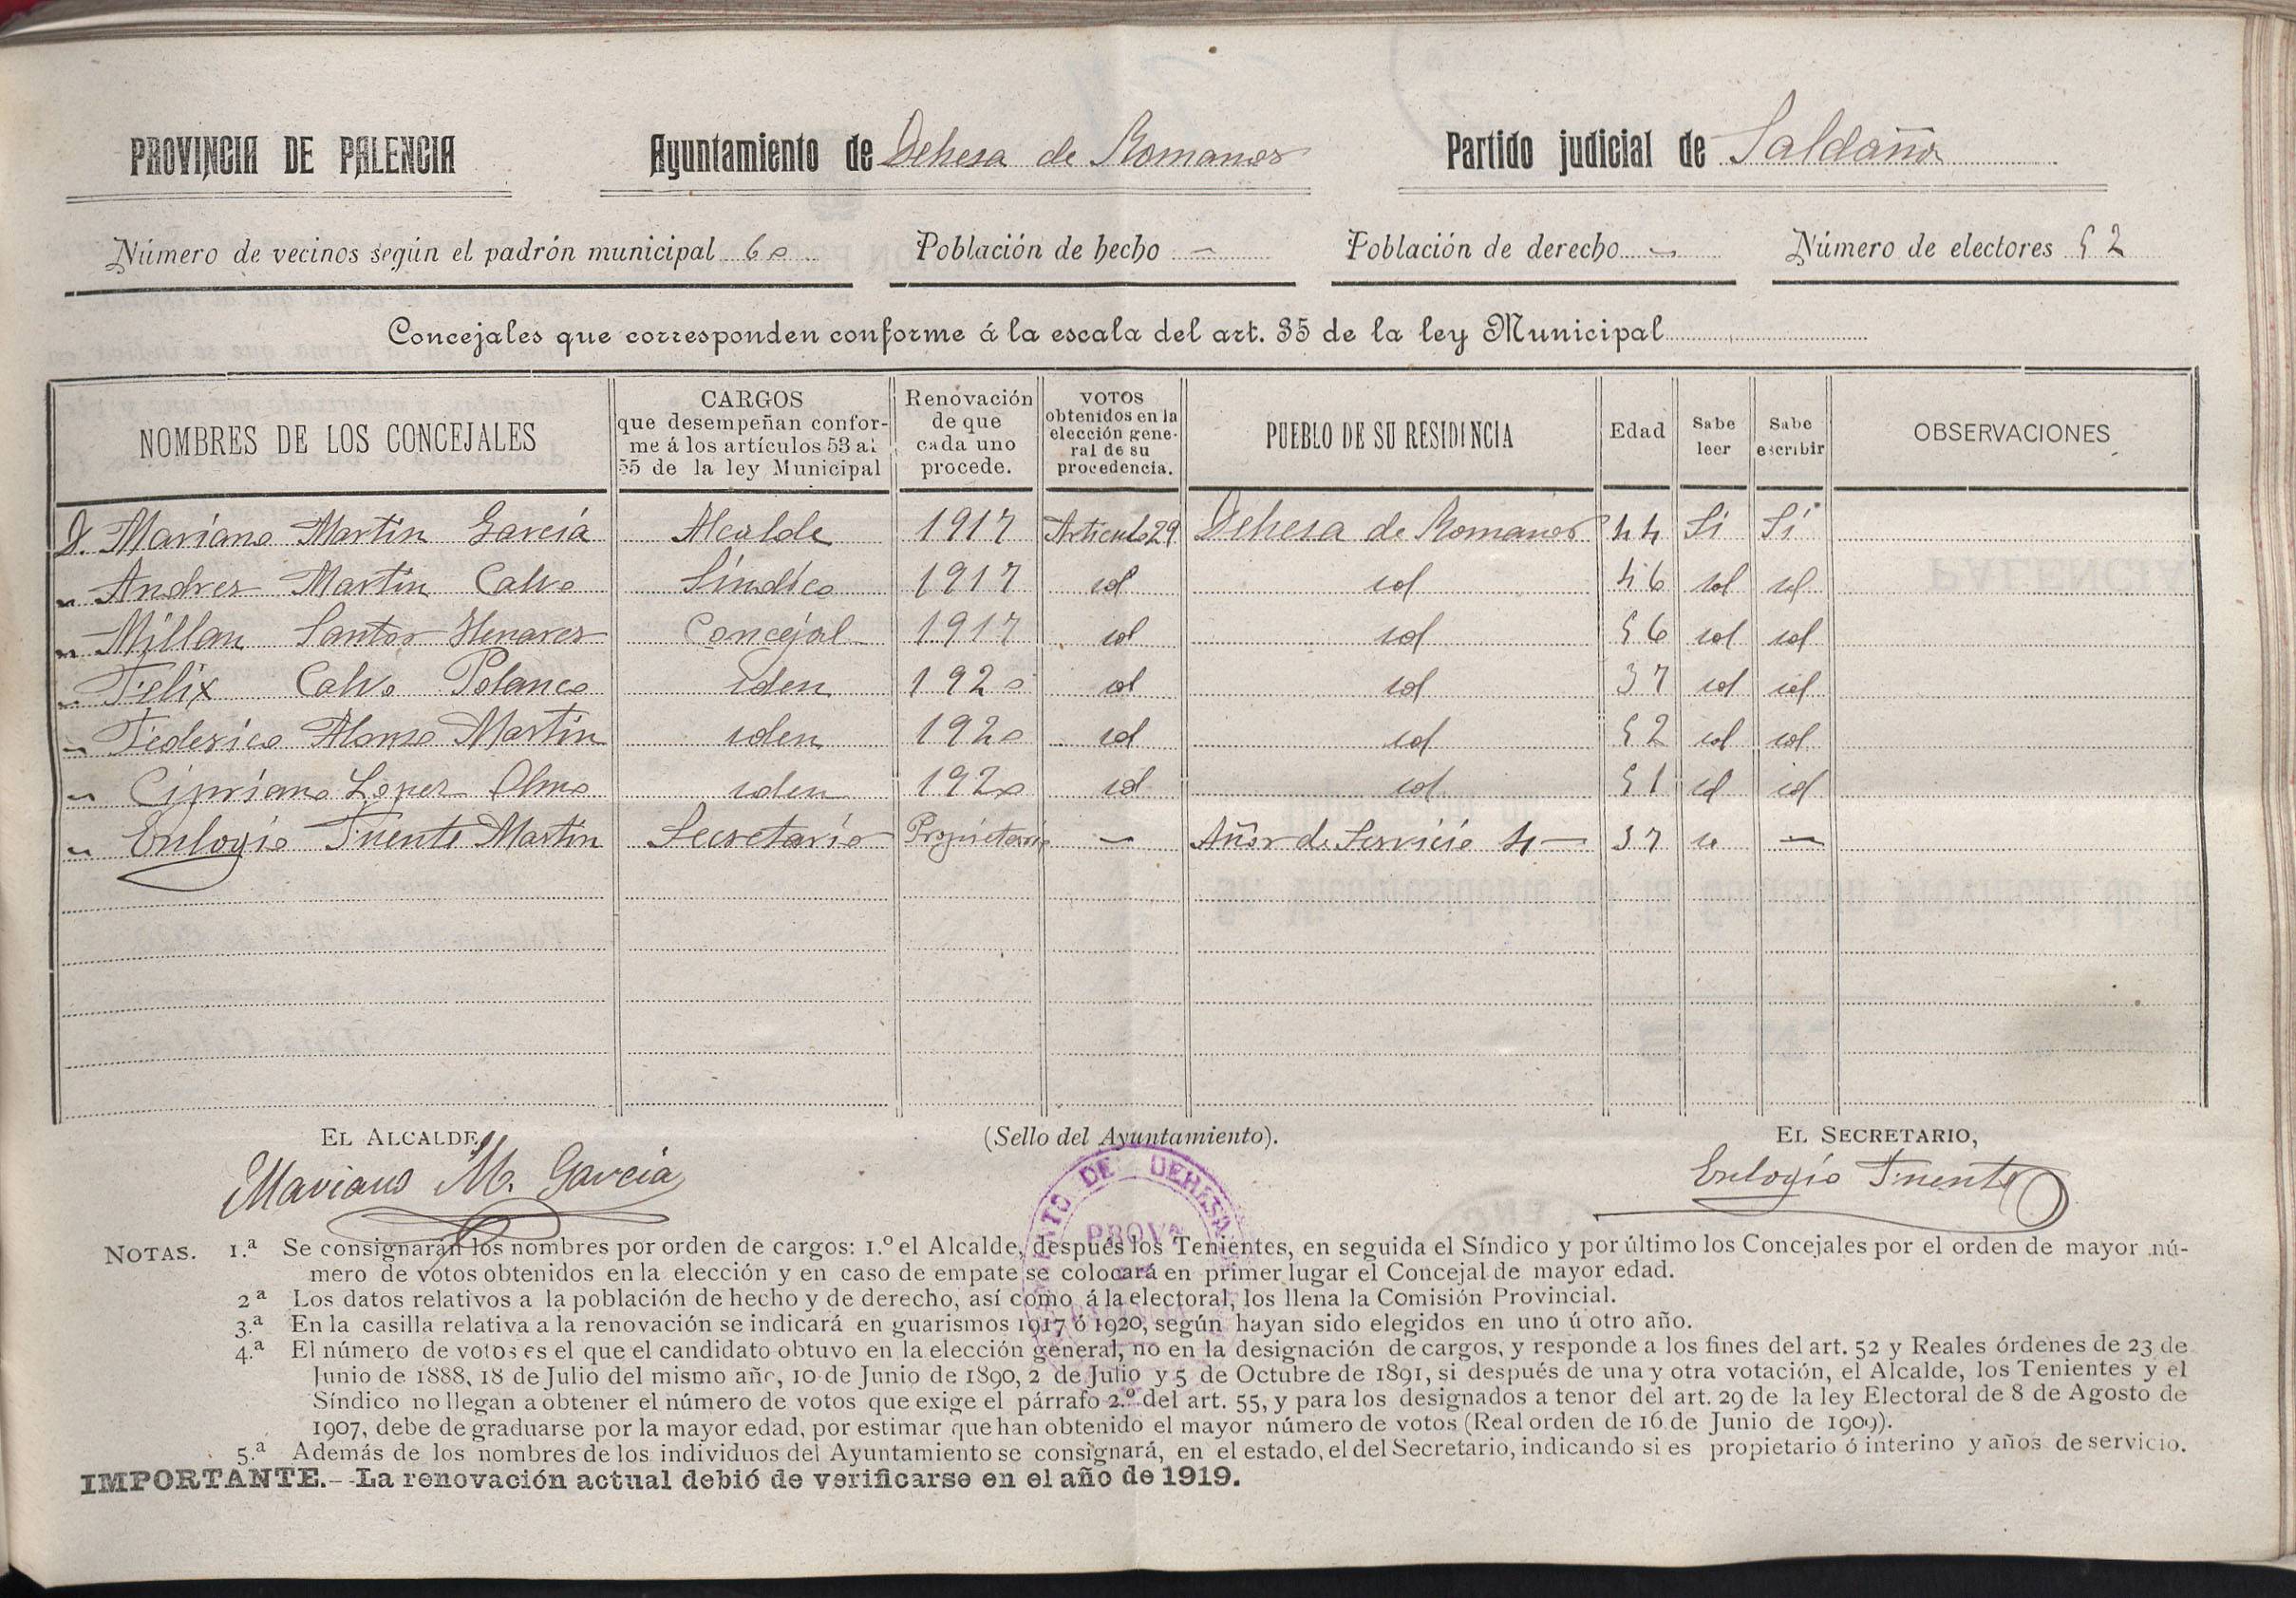 PROVINCIA DE PALENCIA Ayuntamiento de Dehesa de Romanos Partido judicial de Saldaña
Número de vecinos según el padrón municipal 60 Población de hecho — Población de derecho — Número de electores 52
Concejales que corresponden conforme á la escala del art. 35 de la ley Municipal
NOMBRES DE LOS CONCEJALES
CARGOS
que desempeñan confor-
me á los artículos 53 al
55 de la ley Municipal
Renovación
de que
cada uno
procede.
VOTOS
obtenidos en la
elección gene-
ral de su
procedencia.
PUEBLO DE SU RESIDENCIA
Edad
Sabe
leer
Sabe
escribir
OBSERVACIONES
D. Mariano Martin García Alcalde 1917 Artículo 29 Dehesa de Romanos 44 Si Si
" Andres Martin Calvo Síndico 1917 id id 46 id id
" Millan Santos Henares Concejal 1917 id id 56 id id
" Felix Calvo Polanco iden 1920 id id 37 id id
" Federico Alonso Martin iden 1920 id id 52 id id
" Cipriano Lopez Olmo iden 1920 id id 51 id id
" Eulogio Fuente Martin Secretario Propietario — Años de Servicio 4 — 37 —
EL ALCALDE, (Sello del Ayuntamiento). EL SECRETARIO,
Mariano M. García Eulogio Fuente
DE DEHESA
PROVª
NOTAS. 1.ª Se consignarán los nombres por orden de cargos: 1.º el Alcalde, después los Tenientes, en seguida el Síndico y por último los Concejales por el orden de mayor nú-
mero de votos obtenidos en la elección y en caso de empate se colocará en primer lugar el Concejal de mayor edad.
2ª Los datos relativos a la población de hecho y de derecho, así como á la electoral, los llena la Comisión Provincial.
3.ª En la casilla relativa a la renovación se indicará en guarismos 1917 ó 1920, según hayan sido elegidos en uno ú otro año.
4.ª El número de votos es el que el candidato obtuvo en la elección general, no en la designación de cargos, y responde a los fines del art. 52 y Reales órdenes de 23 de
Junio de 1888, 18 de Julio del mismo año, 10 de Junio de 1890, 2 de Julio y 5 de Octubre de 1891, si después de una y otra votación, el Alcalde, los Tenientes y el
Síndico no llegan a obtener el número de votos que exige el párrafo 2.º del art. 55, y para los designados a tenor del art. 29 de la ley Electoral de 8 de Agosto de
1907, debe de graduarse por la mayor edad, por estimar que han obtenido el mayor número de votos (Real orden de 16 de Junio de 1909).
5.ª Además de los nombres de los individuos del Ayuntamiento se consignará, en el estado, el del Secretario, indicando si es propietario ó interino y años de servicio.
IMPORTANTE.--La renovación actual debió de verificarse en el año de 1919.